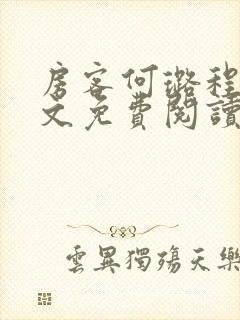 房客何璐程
文免費閱讀
雲異獨殤天樂